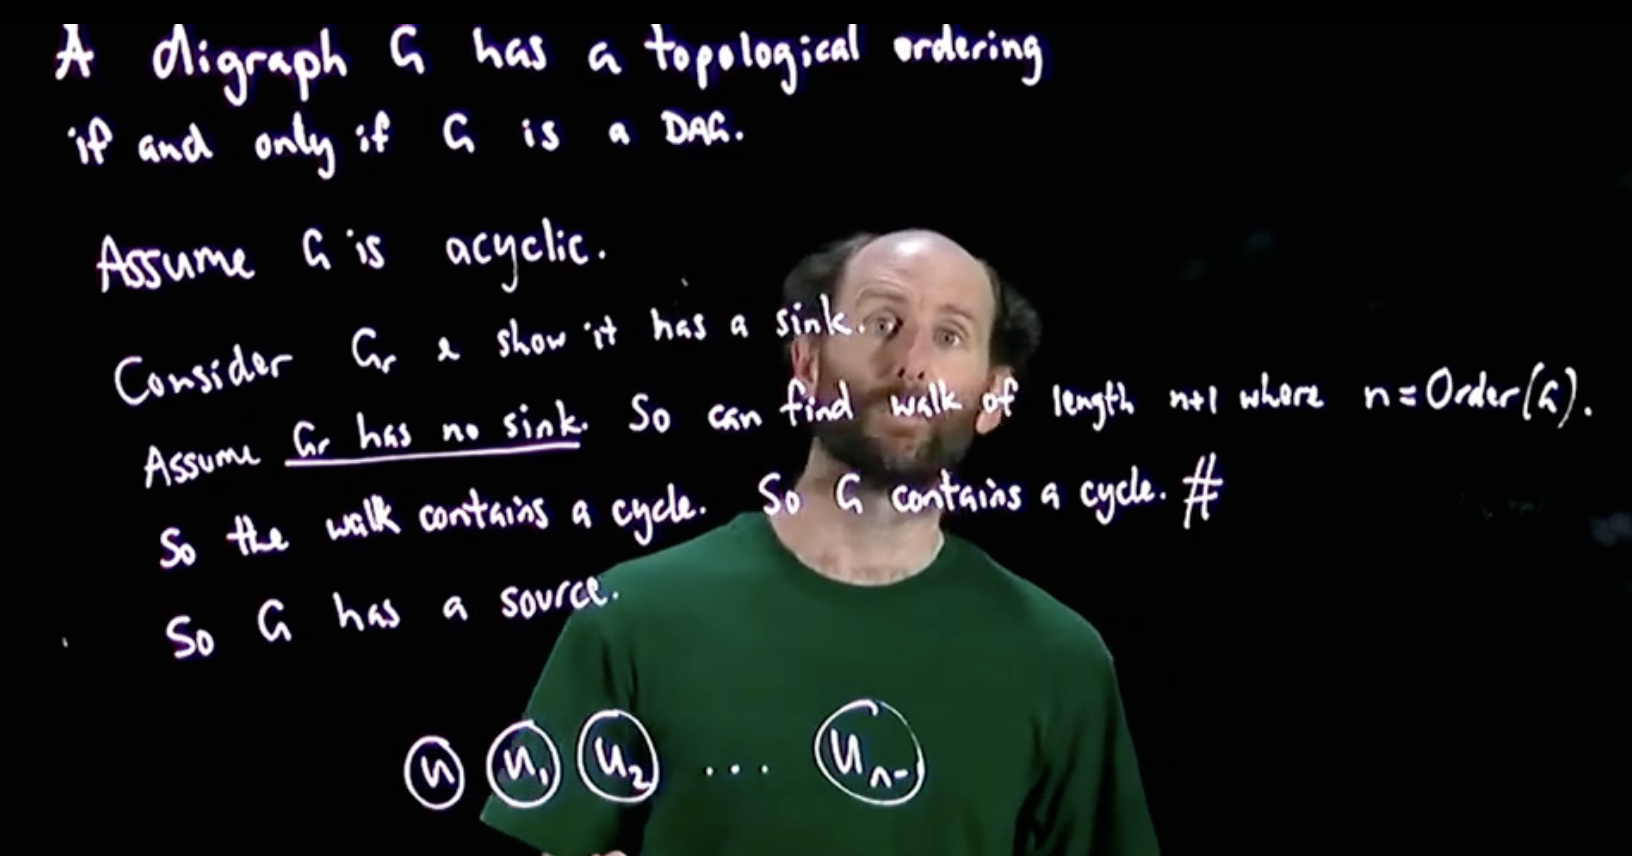 A digraph G has a topological ordering
if and only if G is a DAG.
Assume G is acyclic.
Consider Gr & show it has a sink.
Assume Gr has no sink. So can find walk of length n+1 where n = Order(G).
So the walk contains a cycle. So G contains a cycle. #
So G has a source.
u u₁ u₂ ... uₙ₋